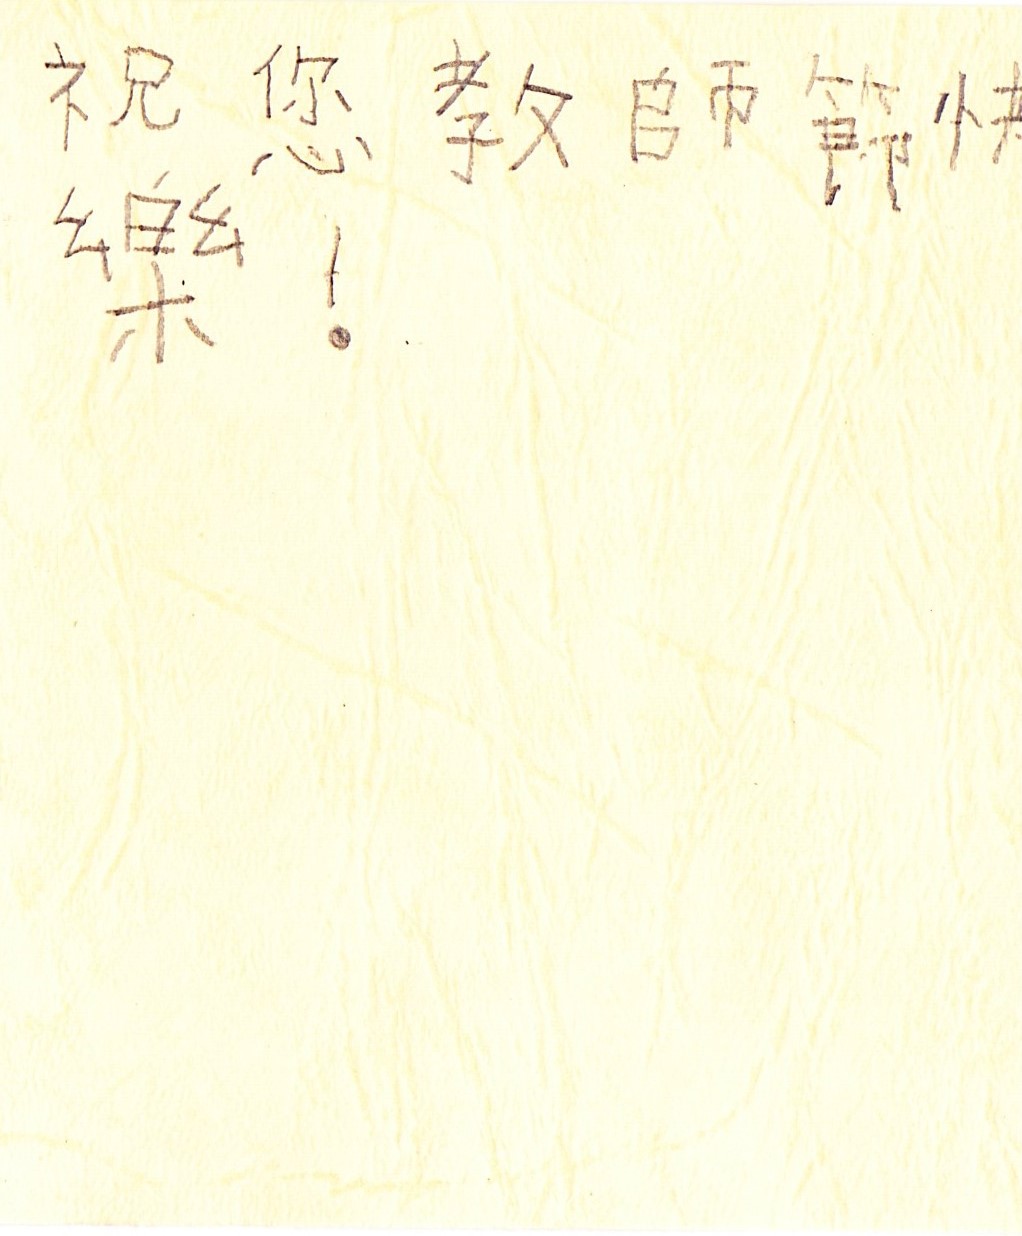 祝您教師節快
樂!